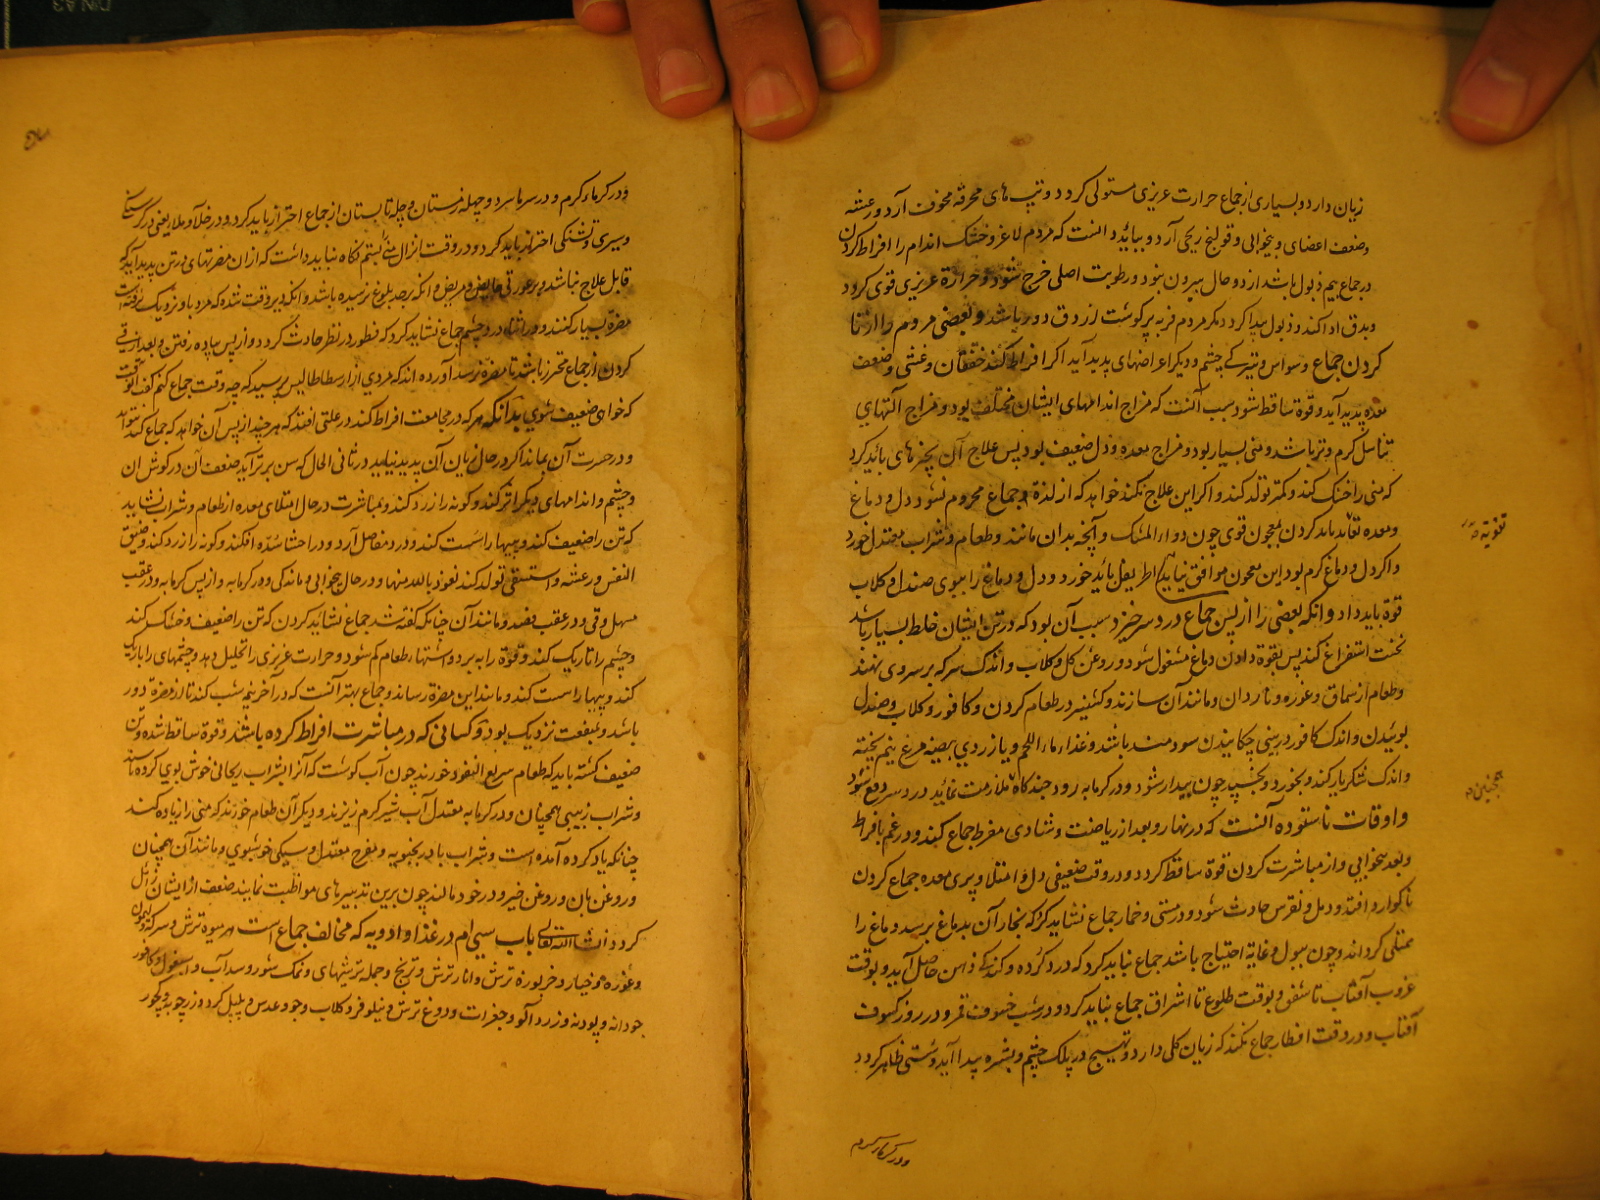 زیان دارد و بسیاری از جماع حرارت عزیزی مستولی کردد و تپ های محرقه مخوف آرد و رعشه
و ضعف اعضای و بیخوابی و قولنج ریحی آرد و بباید دانست که مردم لاغر و خشک اندام را افراط کردن
در جماع بیم ذبول باشد از دو حال بیرون نبود و رطوبت اصلی خرج شود و حرارة عزیزی قوی کردد
و بدق ادا کند و ذبول پیدا کردد مکر مردم فربه پرکوشت از دق دور باشد و بعضی مردم را از تا
کردن جماع وسواس و تیرکی چشم و دیکر اعراضهای پدید آید اکر افراط کند خفقان و غشی و ضعف
معده پدید آید و قوة ساقط شود سبب آنست که مزاج اندامهای ایشان مختلف بود و مزاج آلتهای
تناسل کرم و تر باشد و منی بسیار بود و مزاج معده و دل ضعیف بود پس علاج آن بچیزهای باید کرد
که منی را خنک کند و کمتر تولد کند و اکر این علاج نکند خواهد که از لذة جماع محروم نشود دل و دماغ
و معده تعاهد باید کردن بمعجون قوی چون دواء المسک و آنچه بدان مانند و طعام و شراب معتدل خورد
و اکر دل و دماغ کرم بود این معجون موافق نیاید اطریفل باید خورد و دل و دماغ را ببوی صندل و کلاب
قوة باید داد و انکه بعضی را از پس جماع درد سر خیزد سبب آن بود که در تن ایشان خلط بسیار باشد
نخست استفراغ کند پس بقوة دادن دماغ مشغول شود و روغن کل و کلاب و اندک سرکه بر سر وی نهند
و طعام از سماق و غوره و ناردان و مانند آن سازند و کشنیز در طعام کردن و کافور و کلاب و صندل
بوئیدن و اندک کافور در بینی چکانیدن سودمند باشد و غذا ماء اللحم و یا زردی بیضه مرغ نیم پخته
و اندک شکر یار کند و بخورد و بخسپد چون بیدار شود و در کرمابه رود چندکاه ملازمت نماید درد سر دفع شود
و اوقات ناستوده آنست که در نهار و بعد از ریاضت و شادی مفرط جماع کنند و در غم بافراط
و بعد بیخوابی و از مباشرت کردن قوة ساقط کردد و در وقت ضعیفی دل و امتلا و پری معده جماع کردن
ناکوارد افتد و دمل و نقرس حادث شود و در مستی و خمار جماع نشاید کرد که بخار آن بدماغ برسد و دماغ را
ممتلی کرداند و چون ببول و غایة احتیاج باشد جماع نباید کرد که درد کرده و کندی ذهن حاصل آید و بوقت
غروب آفتاب تا شفق و بوقت طلوع تا اشراق جماع نباید کرد و در شب خسوف قمر و در روز کسوف
آفتاب و در وقت افطار جماع نکند که زیان کلی دارد و تهیج در پلک چشم و بشره پیدا آید و سستی ظاهر کردد
تقویة
و در کرماء کرم و در سرما سرد و چله زمستان و چله تابستان از جماع احتراز باید کرد و در خلا و ملا یعنی در کرسنکی
و سیری و تشنکی احتراز باید کرد و در وقت انزال منی بستم نکاه نباید داشت که ازان مضرتهای در تن پدید آید که
قابل علاج نباشد و بر عورتی حایض و مریض و انکه بحد بلوغ نرسیده باشد و انکه دیر وقت شده که مرد باو نزدیک نرفته است
مضرة بسیار کند و در اثناء درد چشم جماع نشاید کرد که فطور در نظر حادث کردد و از پس پیاده رفتن و بعد از قی
کردن از جماع محترز باشد تا مضرة نرسد آورده اند که مردی از ارسطاطالیس پرسید که چه وقت جماع کنم کفت آنوقت
که خواهی ضعیف شوی بدانکه هر که در مجامعت افراط کند در علتی افتد که هر چند از پس آن خواهد که جماع کند نتواند
و در حسرت آن بماند اکر در حال زیان آن پدید نیاید در ثانی الحال که سن بر تر آید ضعف آن در کوش ان
و چشم و اندامهای دیکر اثر کند و کونه را زرد کند و مباشرت در حال امتلای معده از طعام و شراب نشاید
که تن را ضعیف کند و پیها را سست کند و درد مفاصل آرد و در احشا سده افکند و کونه را زرد کند و ضیق
النفس و رعشه و استسقی تولد کند نعوذ بالله منها و در حال بیخوابی و ماندکی و در کرمابه و از پس کرمابه و در عقب
مسهل و قی و در عقب فصد و مانند آن چنانکه کفته شد جماع نشاید کردن که تن را ضعیف و خشک کند
و چشم را تاریک کند و قوة را ببرد و اشتهاء طعام کم شود و حرارت عزیزی را تحلیل دهد و چشمهای را باریک
کند و پیها را سست کند و مانند این مضرة رساند و جماع بهتر آنست که در آخر نیم شب کند تا از مضرة دور
باشد و بمنفعت نزدیک بود و کسانی که در مباشرت افراط کرده باشند و قوة ساقط شده و تن
ضعیف کشته باید که طعام سریع النفوذ خورند چون آب کوشت که آنرا بشراب ریحانی خوش بوی کرده باشند
و شراب زبیبی همچنان و در کرمابه معتدل آب شیر کرم ریزند و دیکر آن طعام خورند که منی را زیاده کند
چنانکه یاد کرده آمده است و شراب بادرنجبویه و مفرح معتدل و سیکی خوشبوی و مانند آن همچنان
و روغن بان و روغن خیرو در خود مالند چون برین تدبیرهای مواظبت نمایند ضعف از ایشان زائل
کردد انشاء الله تعالی باب سی ام در غذا و ادویه که مخالف جماع است هر میوة ترش و سرکه و لیمون
و غوره و خیار و خربوزه ترش و انار ترش و ترنج و جمله ترشیهای و نمک شور و سداب و اسبغول و کافور
جودانه و پودنه و زرد آلو و جغرات و دوغ ترش و نیلوفر و کلاب و جو و عدس و پلپل کرد و زرچوبه و بجور